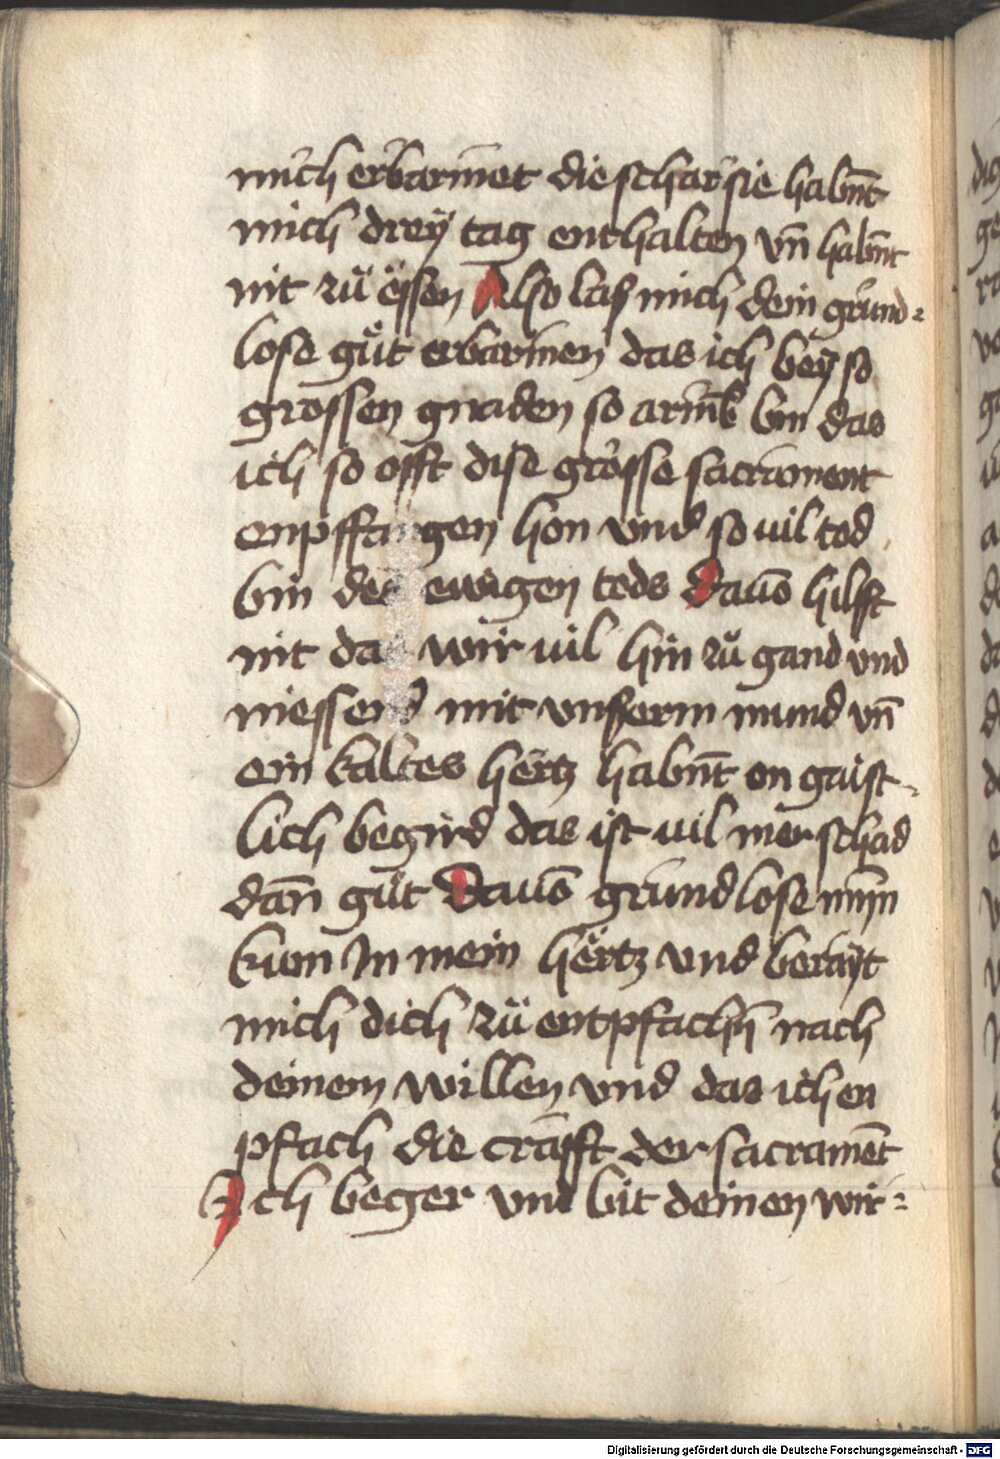 mich erbarmet die schar sie habn̄t
mich dreÿ tag enthalten vn̄ habn̄t
nit zů essen Also las mich dein grund⸗
lose gůt erbarmen das ich beÿ so
grossen gnaden so arm̄k bin das
ich so offt dise grosse sacrament
enpffangen hon vnd so uil tod
bin des ewigen tods Dauō hilfft
nit das wir uil hin zů gand vnd
niessend mit vnserm mund vn̄
ein kaltes hertz habn̄t on gaist⸗
lich begird das ist uil mer schad
dan̄ gůt Dauō grundlose miñ
kum In mein hertz vnd berayt
mich dich zů entpfachn̄ nach
deinem willen vnd das ich en
pfach die crafft der sacramēt
Ich beger vnd bit deinen wir⸗
Digitalisierung gefördert durch die Deutsche Forschungsgemeinschaft - DFG